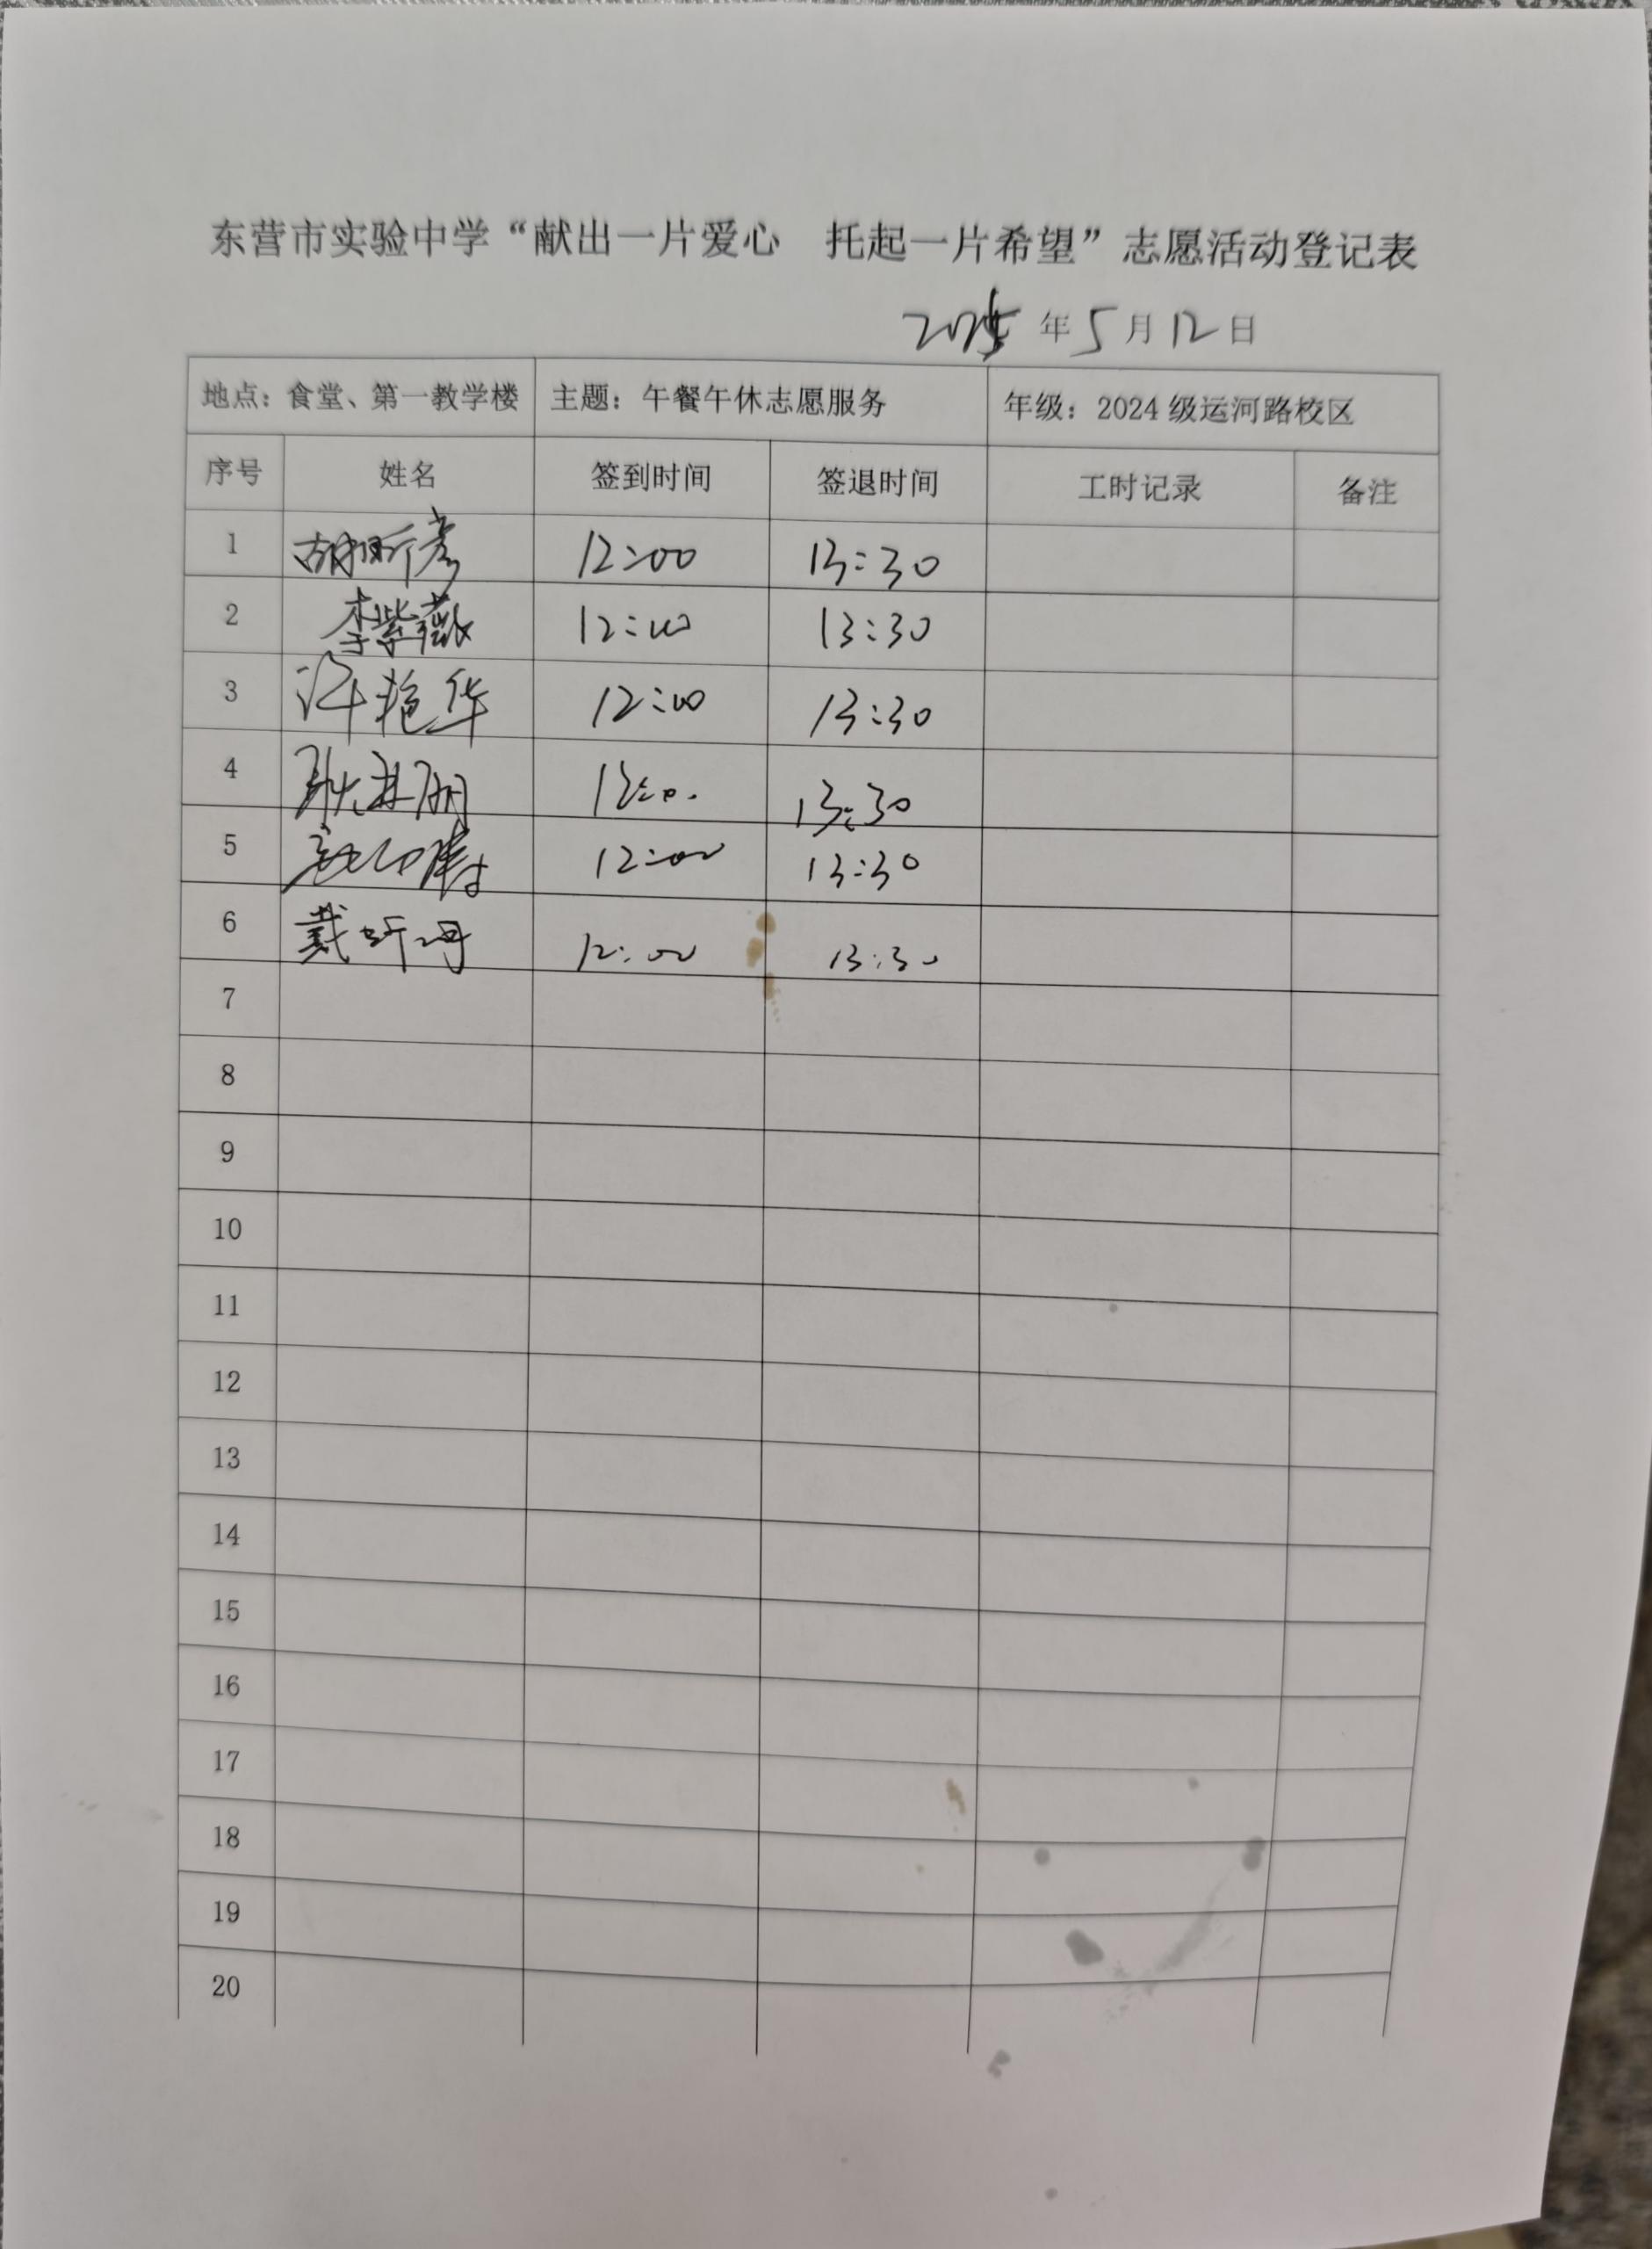 东营市实验中学“献出一片爱心 托起一片希望”志愿活动登记表
2025年5月12日
地点：食堂、第一教学楼 主题：午餐午休志愿服务 年级：2024级运河路校区
序号 姓名 签到时间 签退时间 工时记录 备注
1 胡昕彦 12:00 13:30
2 李紫薇 12:00 13:30
3 许艳华 12:00 13:30
4 13:30
5 12:00 13:30
6 戴昕 12:00 13:30
7
8
9
10
11
12
13
14
15
16
17
18
19
20